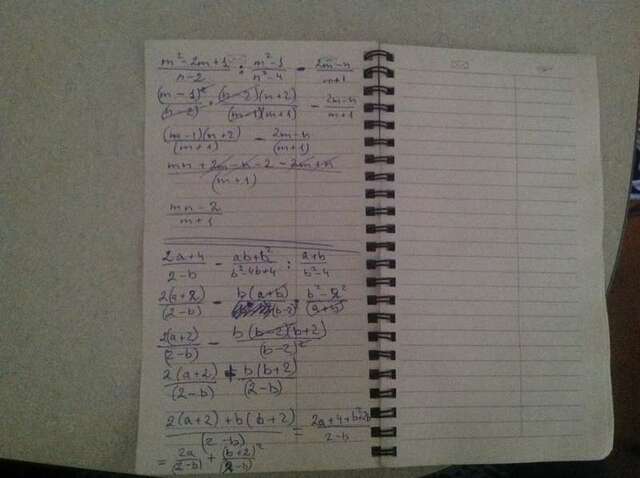 m²-2m+1/n-2 : m²-1/n²-4 - 2m-n/m+1
(m-1)²/(n-2) · (n-2)(n+2)/(m-1)(m+1) - 2m-n/m+1
(m-1)(n+2)/(m+1) - 2m-n/(m+1)
mn+2m-n-2-2m+n/(m+1)
mn-2/m+1
2a+4/2-b - ab+b²/b²-4b+4 : a+b/b²-4
2(a+2)/(2-b) - b(a+b)/(b-2)² · b²-2²/(a+b)
2(a+2)/(2-b) - b(b-2)(b+2)/(b-2)²
2(a+2)/(2-b) + b(b+2)/(2-b)
2(a+2)+b(b+2)/(2-b) = 2a+4+b²+2b/2-b
= 2a/(2-b) + (b+2)²/(2-b)